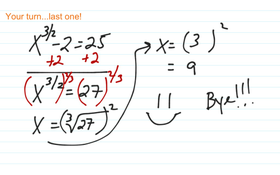 Your turn...last one!
x^{3/2} - 2 = 25
+2 +2
(x^{3/2})^{2/3} = (27)^{2/3}
x = (∛27)^2
x = (3)^2
= 9
Bye!!!